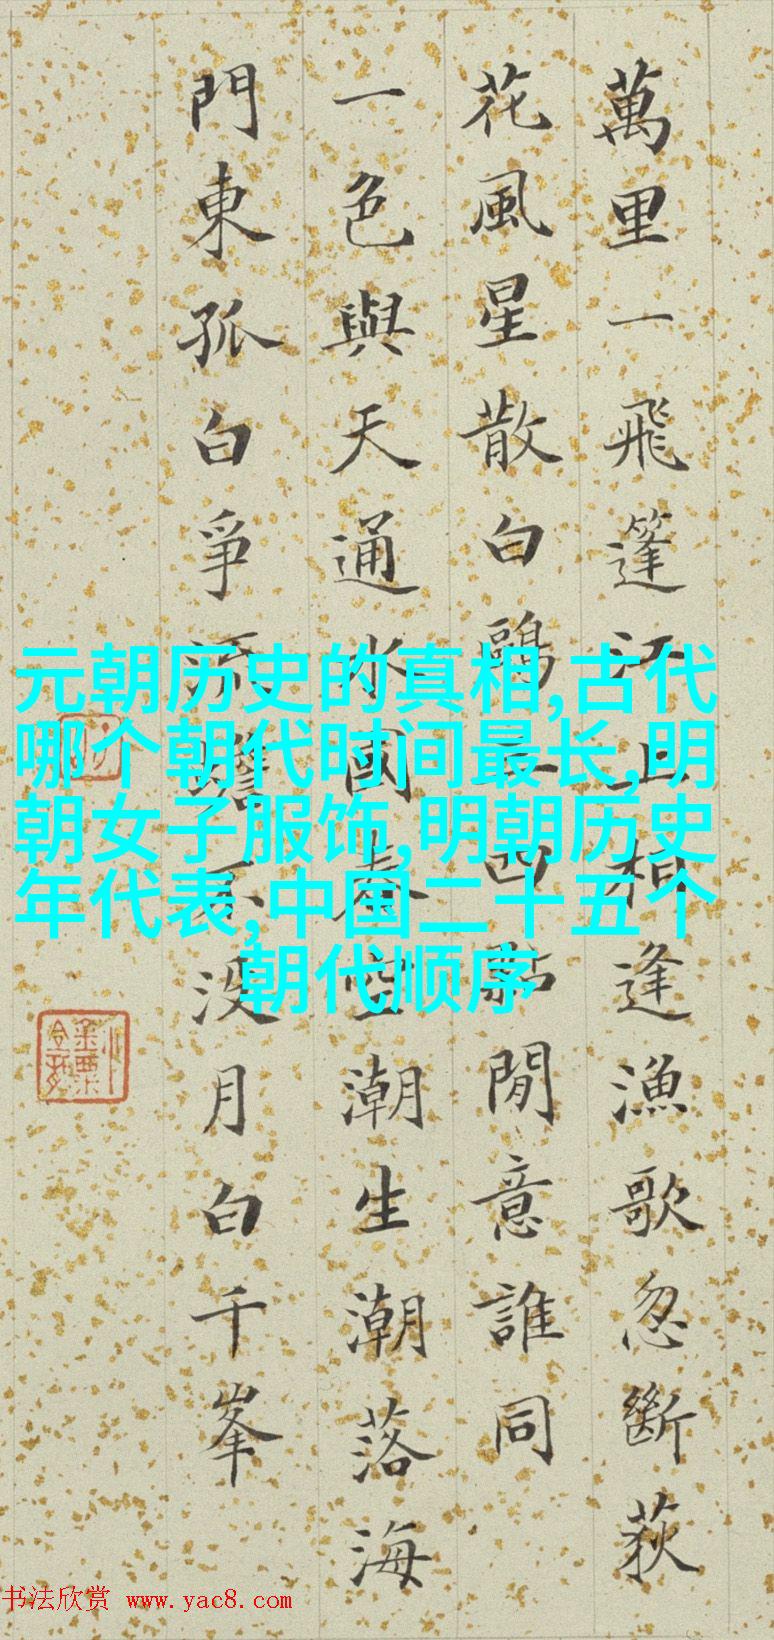 萬里一飛篷江上相逢漁歌忽斷荻
花風星散白鷗四點閒意誰同
一色與天通水國空潮生潮落海
門東孤白爭流蟾不沒月白千峯
元朝历史的真相,古代
哪个朝代时间最长,明
朝女子服饰,明朝历史
年代表,中国二十五个
朝代顺序
书法欣赏 www.yac8.com